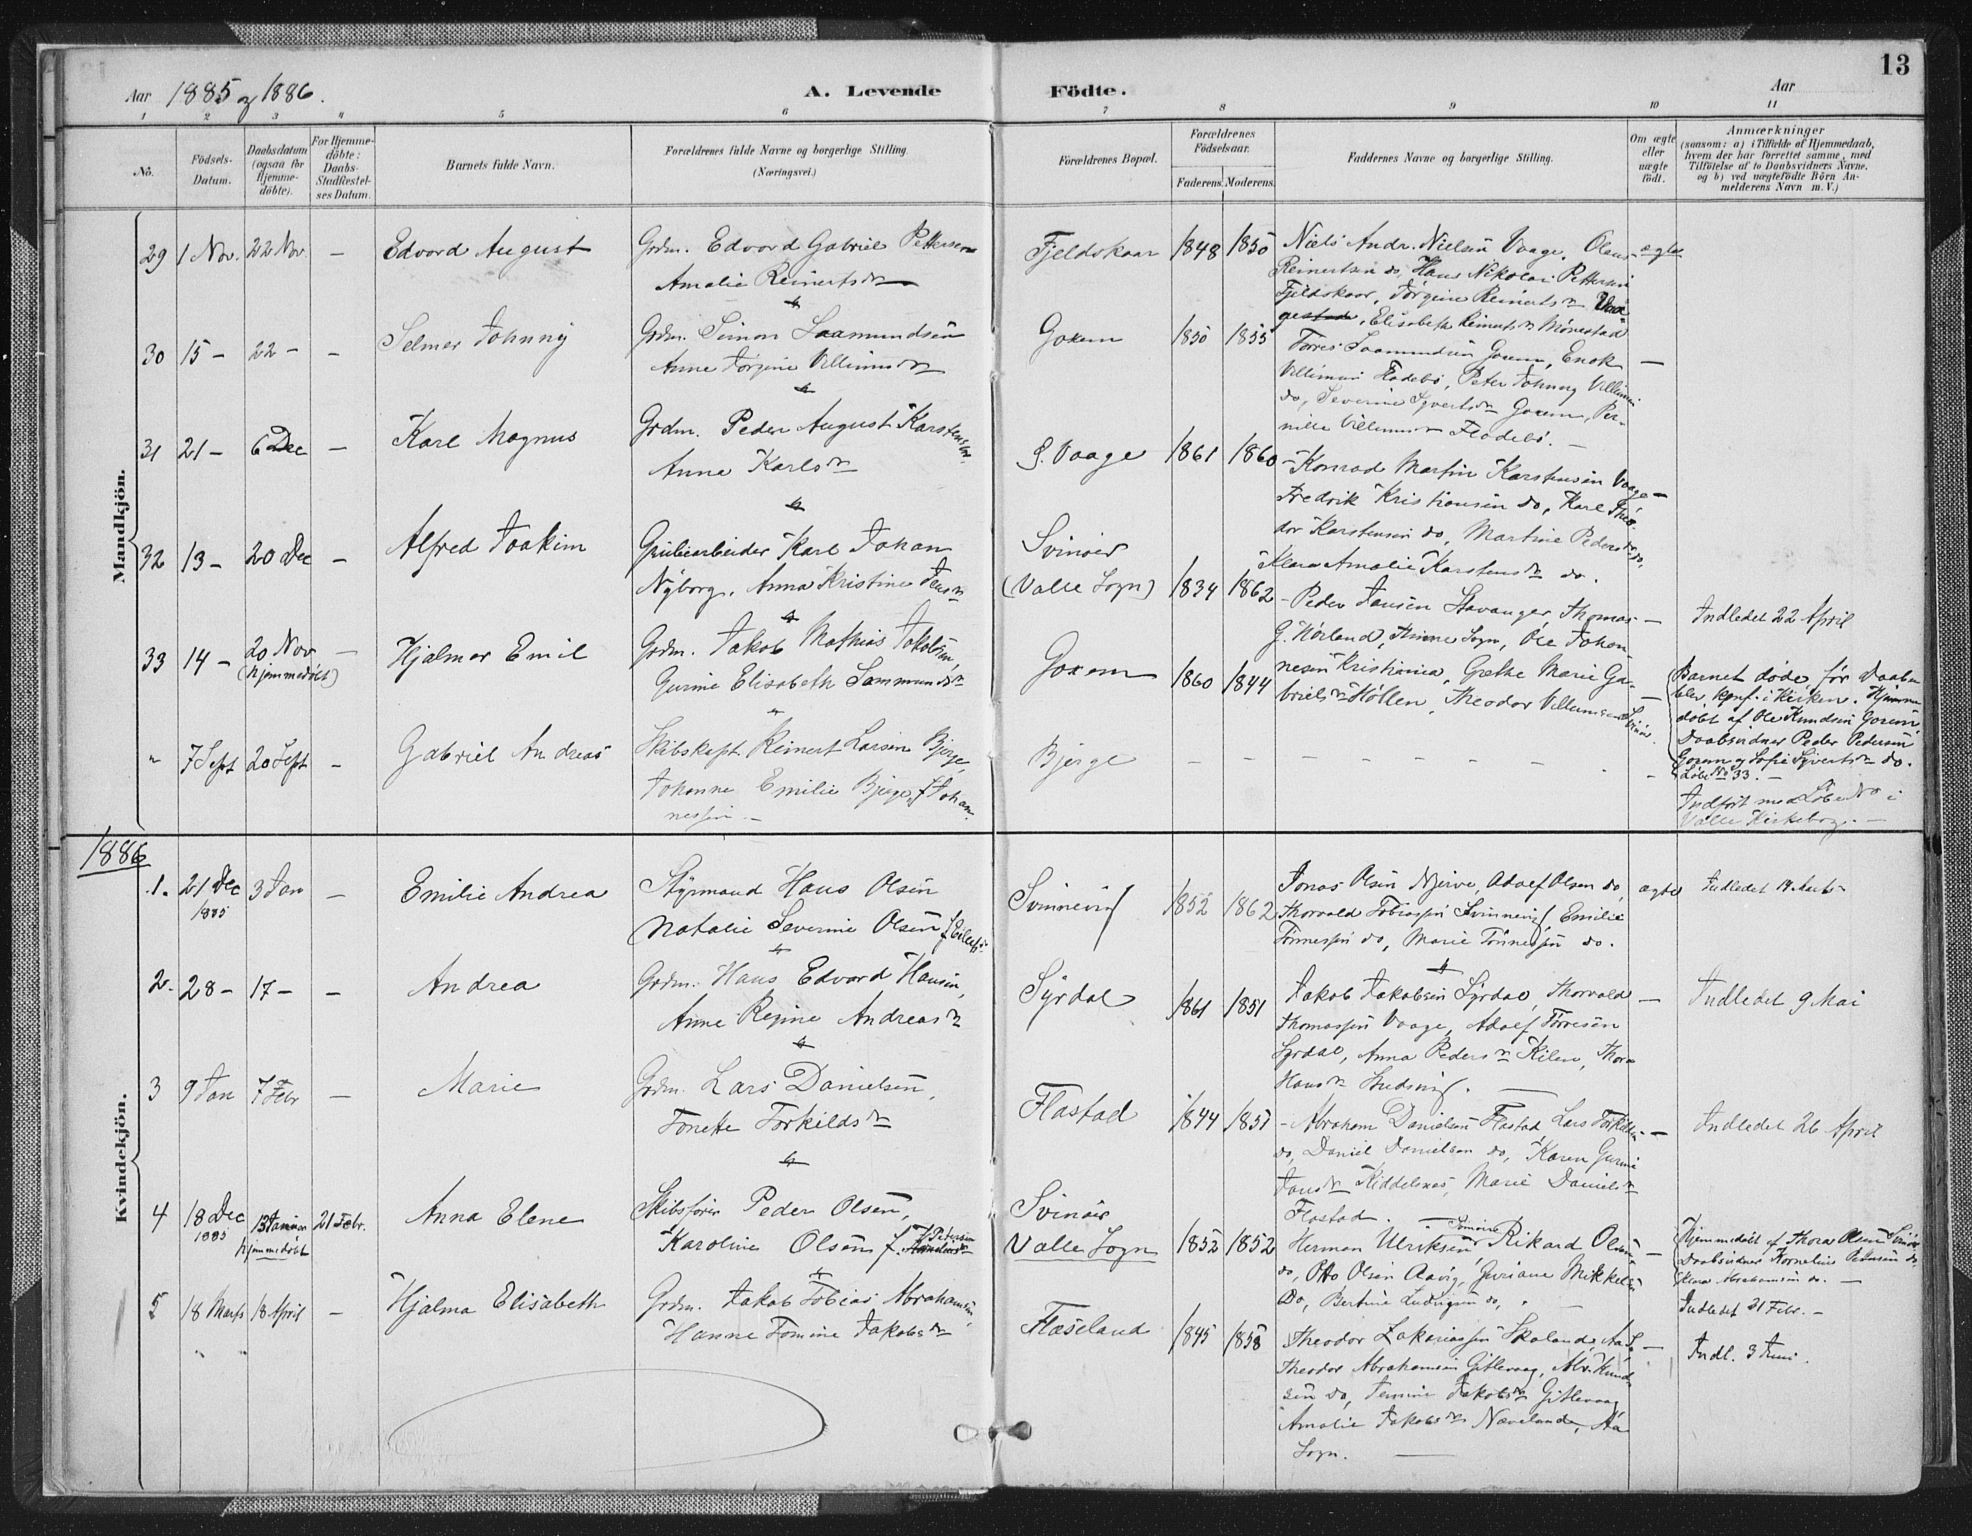 Aar 1885 og 1886.
A. Levende Födte.
Aar
13
1 2 3 4 5 6 7 8 9 10 11
No.
Födsels-Datum.
Daabsdatum (ogsaa for Hjemme-döbte).
For Hjemme-döbte: Daabs-Stadfæstel-ses Datum.
Barnets fulde Navn.
Forældrenes fulde Navne og borgerlige Stilling. (Næringsvei.)
Forældrenes Bopæl.
Forældrenes Födselsaar.
Faderens. Moderens.
Faddernes Navne og borgerlige Stilling.
Om ægte eller uægte födt.
Anmærkninger
(saasom: a) i Tilfælde af Hjemmedaab, hvem der har forrettet samme, med Tilföielse af to Daabsvidners Navne, og b) ved uægtefödte Börn An-melderens Navn m. V.)
Mandkjön.
29 1 Nov. 22 Nov. –
Edvard August
Grdm. Edvard Gabriel Pettersen
Amalie Reinertsdr
Fjeldskaar 1848 1850
Niels Andr. Nielsen Vaage, Olaus
Reinertsen do, Hans Nikolai Pettersen
Fjeldskaar, Jørgine Reinertsdr
Elisabeth Reinertsdr Mönestad
ægte
30 15 – 22 – –
Selmer Johnny
Grdm. Simon Saamundsen
Anne Jörgine Villumsdr
Goxem 1850 1855
Torres Saamundsen Goxem, Enok
Villumsen Flodebö, Peter Johnny Villumsen
do, Severine Syvertsdr Goxem, Per-
nille Villumsdr Flodebö. –
31 21 – 6 Dec –
Karl Magnus
Grdm. Peder August Karstensen
Anne Karlsdr
S. Vaage 1861 1860
Konrad Martin Karstensen Vaage –
Fredrik Kristiansen do, Karl Theo-
dor Karstensen do, Martine Pedersdr do,
Klara Amalie Karstensdr do.
32 13 – 20 Dec –
Alfred Joakim
Karl Johan
Nyborg, Anna Kristine Jensdr
Svinöer
(Valle Sogn) 1834 1862
Peder Jansen Stavanger, Thomas –
G. Hörland, Sogn, Ole Johan-
nesen Kristiania, Grethe Marie Ga-
brielsdr Höllen, Theodor Villumsen Svinör.
Indledet 22 April
33 14 – 20 Nov – (hjemmedöbt)
Hjalmar Emil
Grdm. Jakob Mathias Jakobsen,
Gurine Elisabeth Sammundsdr
Goxem 1860 1844
Barnet döde, för Daaben
blev konf. i Kirken. Hjemme
döbt af Ole Knudsen Goxem,
Daabsvidner Peder Pedersen
Goxem og Sofie Syvertsdr do.
Löbe No 33. –
" 7 Sept 20 Sept –
Gabriel Andreas
Skibskapt. Reinert Larsen Bjerge,
Johanne Emilie Bjerge, f. Johan-
nessen –
Bjerge – – – – – –
Indfört med Löbe No i
Valle Kirkebog. –
1886
Kvindekjön.
1. 21 Dec 1885 3 Jan –
Emilie Andrea
Styrmand Hans Olsen
Natalie Severine Olsen
Svinnevig 1852 1862
Jonas Olsen Njerve, Adolf Olsen do,
Thorvald Tobiassen Svinnevig, Emilie
Tönnessen do, Marie Tönnessen do.
ægte
Indledet 14 Marts
2. 28 – 17 – –
Andrea
Grdm. Hans Edvard Hansen,
Anne Regine Andreasdr
Syrdal 1861 1851
Jakob Jakobsen Syrdal, Thorvald –
Thomassen Vaage, Adolf Torresen
Syrdal, Anna Pedersdr Kilen, Thora
Hansdr
Indledet 9 Mai
3 9 Jan 7 Febr –
Marie
Grdm. Lars Danielsen,
Tonette Torkildsdr
Flastad 1844 1851
Abraham Danielsen Flastad Lars Torkildsen –
do, Daniel Danielsen do, Karen Gurine
Jansdr Kiddelsnes, Marie Danielsdr
Flastad. –
Indledet 26 April
4 18 Dec 1885 13 Januar hjemmedöbt 21 Febr.
Anna Elene
Skibsförer Peder Olsen,
Karoline Olsen f. Petersen
Svinöer
Valle Sogn 1852 1852
Herman Ulriksen Svinöer Rikard Olsen –
do, Otto Olsen Aavig, Guriane Mikkelsen
do, Bertine Ludvigsen do,
Hjemmedöbt af Thora Olsen Svinöer
Daabsvidner Kornelius Pettersen do
Abrahamsen do. –
Indledet 21 Febr. –
5 18 Marts 18 April –
Hjalma Elisabeth
Grdm. Jakob Tobias Abrahamsen,
Hanne Tomine Jakobsdr
Flaseland 1845 1858
Theodor Zakariassen Skoland, Aa S. –
Theodor Abrahamsen Gitlevaag, Abr. Knud-
sen do, Jakobsdr Gitlevaag,
Amalie Jakobsdr Naveland, Aa
Sogn. –
Indl. 3 Juni.